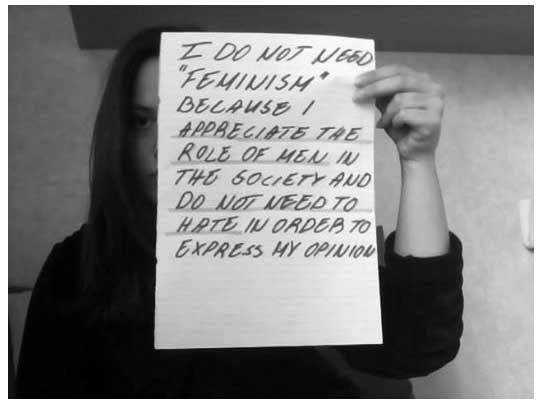 I DO NOT NEED
"FEMINISM"
BECAUSE I
APPRECIATE THE
ROLE OF MEN IN
THE SOCIETY AND
DO NOT NEED TO
HATE IN ORDER TO
EXPRESS MY OPINION